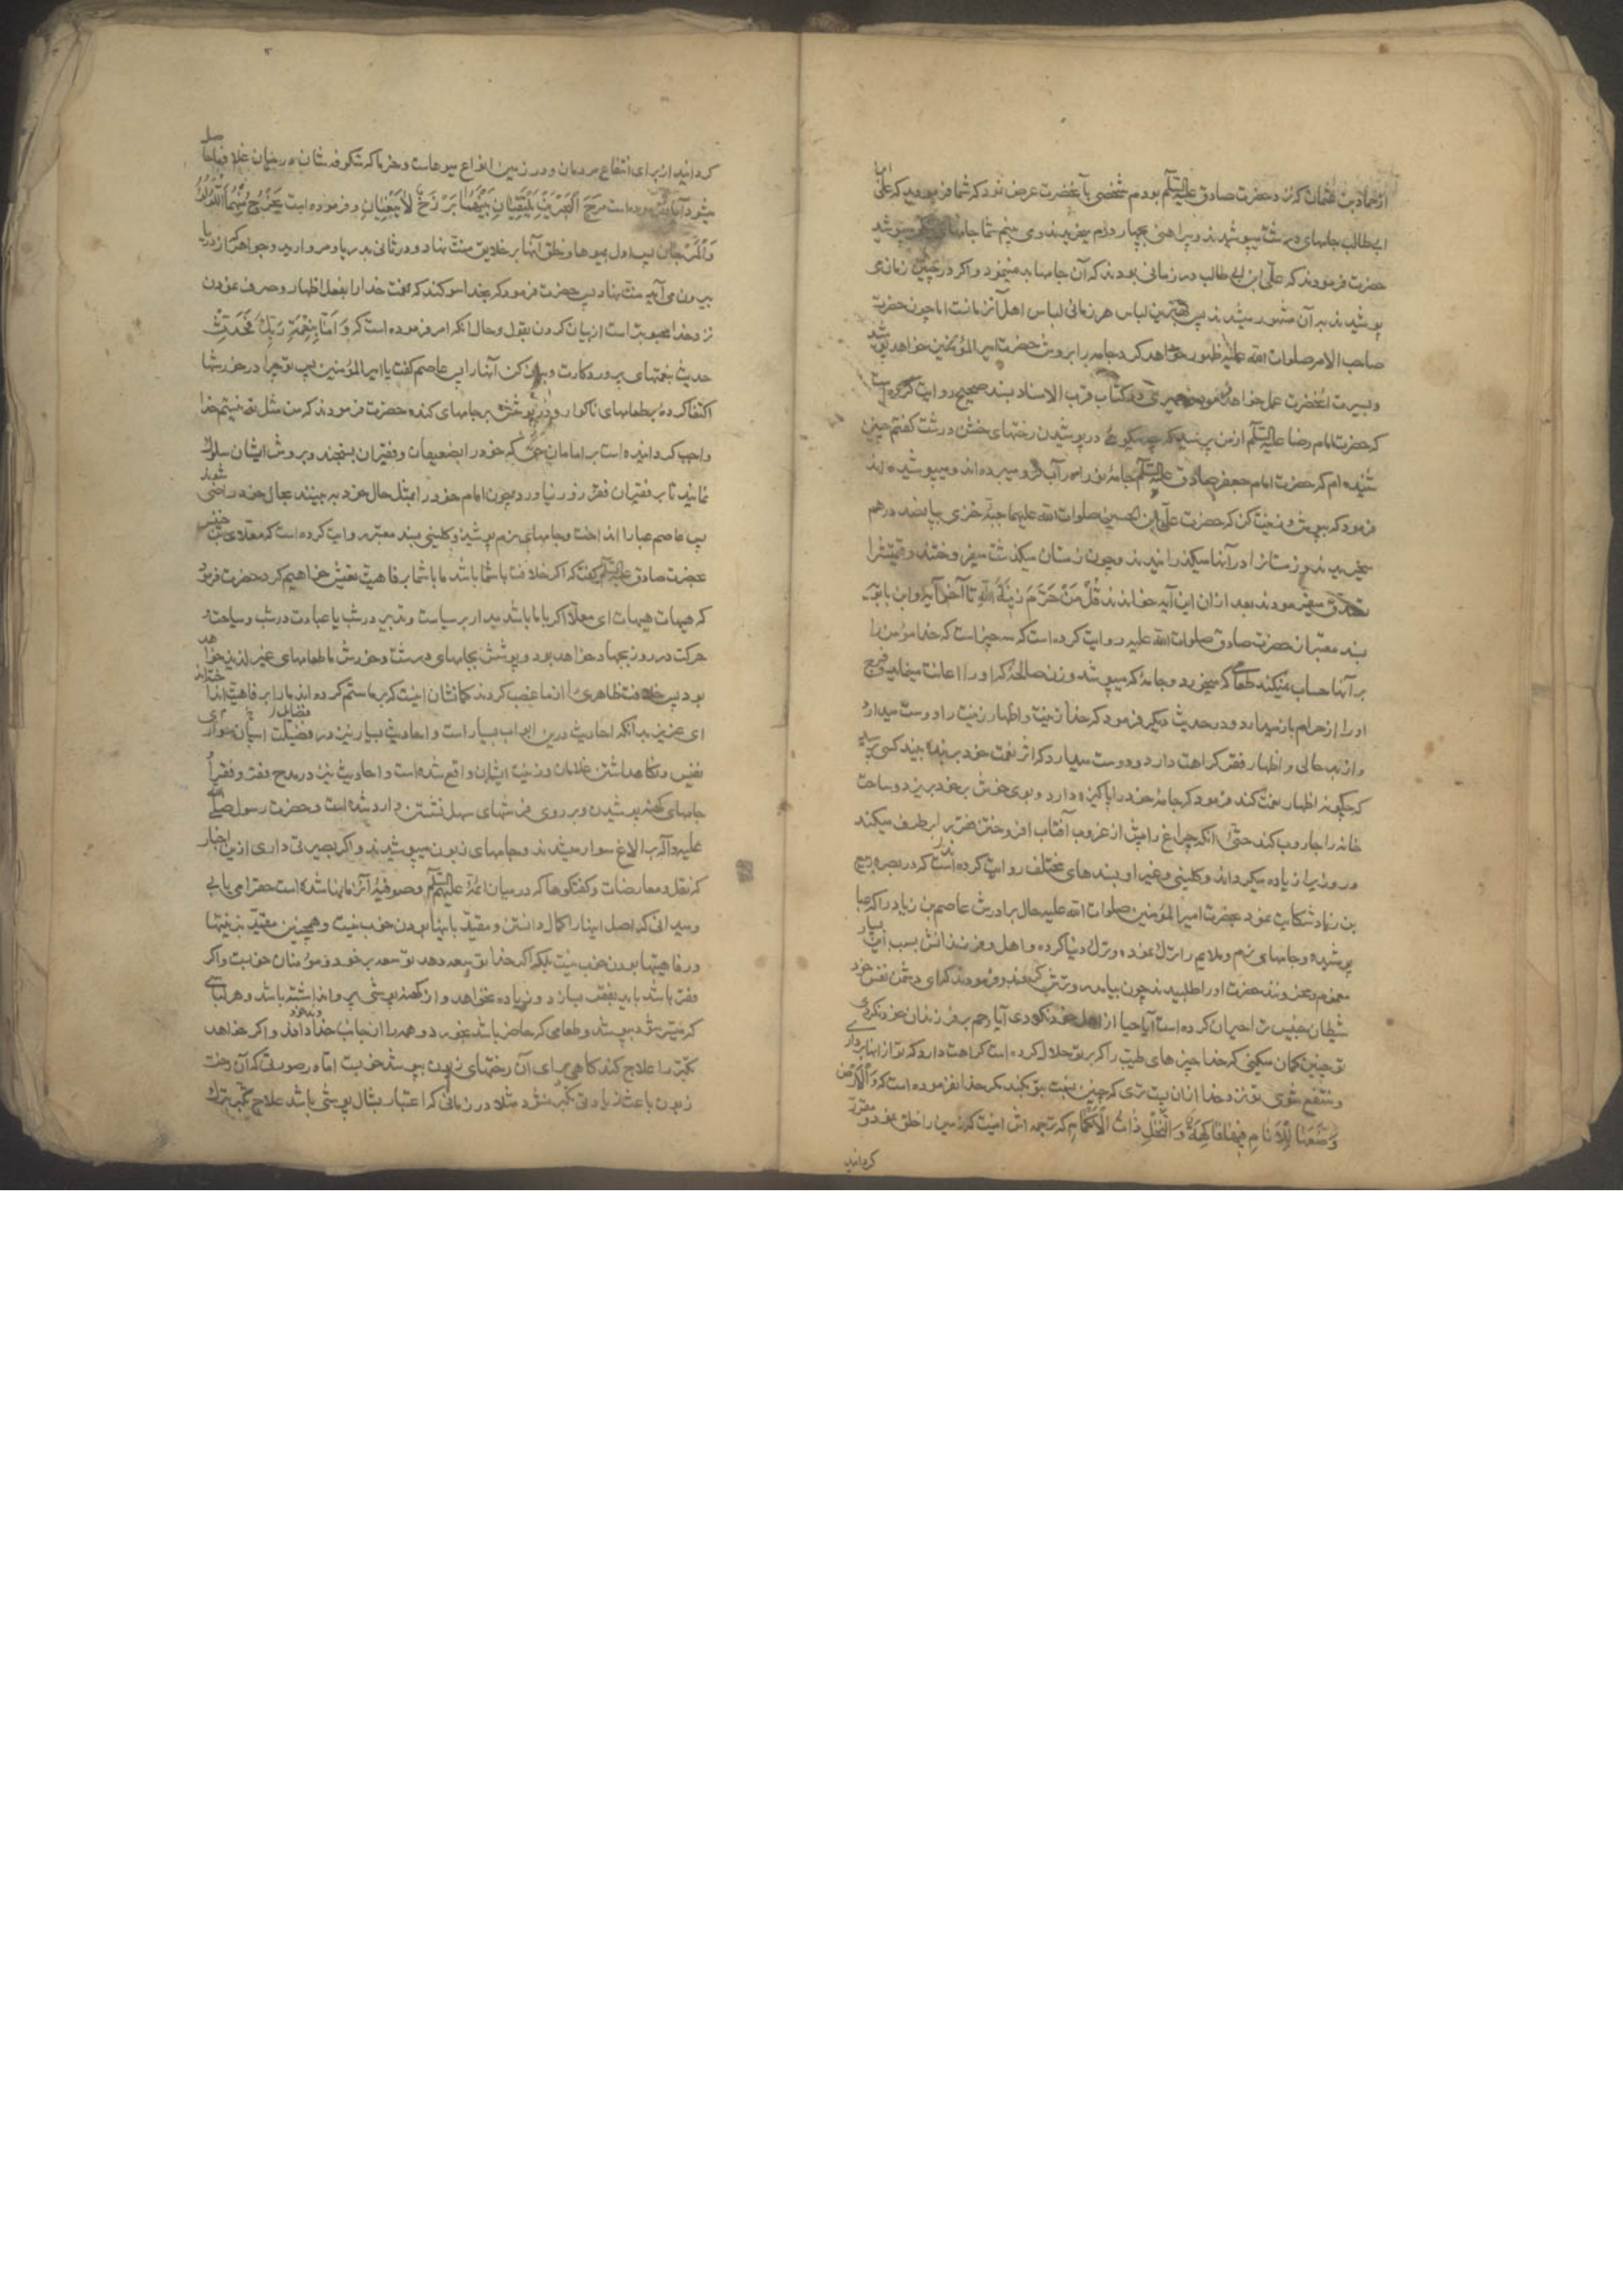 از حماد بن عثمان که نزد حضرت صادق علیه السلم بودم شخصی بآنحضرت عرض نمود که شما فرمودید که علی ابن
ابی طالب جامهای درشت میپوشیدند و پیراهنی بچهار درم میخریدند و می بینم شما جامهای میپوشید
حضرت فرمودند که علی ابن ابی طالب در زمانی بودند که آن جامها بد نمینمود و اگر در چنین زمانی
پوشیدند بآن مشهور میشدند پس بهترین لباس هر زمانی لباس اهل آن زمانست اما چون حضرت
صاحب الامر صلوات الله علیه ظهور خواهد کرد جامه را بروش حضرت امیر المؤمنین خواهد پوشید
و بسیرت آنحضرت عمل خواهد نمود حمیری در کتاب قرب الاسناد بسند صحیح روایت کرده است
که حضرت امام رضا علیه السلم از من پرسید که چه میگویی در پوشیدن رختهای خشن درشت گفتم چنین
شنیده ام که حضرت امام جعفر صادق علیه السلم جامه نو را در آب فرو میبرده اند و میپوشیده اند
فرمود که بپوش و زینت کن که حضرت علی ابن الحسین صلوات الله علیهما جبه خزی بپانصد درهم
میخریدند و زمستانرا در آنها میگذرانیدند و چون زمستان میگذشت میفروختند و قیمتش را
تصدق میفرمودند بعد از ان این آیه خواندند قُلْ مَنْ حَرَّمَ زِينَةَ اللهِ تا آخر آیه و ابن بابویه
بسند معتبر از حضرت صادق صلوات الله علیه روایت کرده است که سه چیز است که خدا مؤمن را
بر آنها حساب نمیکند طعامی که میخورد و جامه که میپوشد و زن صالحه که او را اعانت مینماید و فرج
او را از حرام باز میدارد و در حدیث دیگر فرمود که خدا زینت و اظهار زینت را دوست میدارد
و از بد حالی و اظهار فقر کراهت دارد و دوست میدارد که اثر نعمت خود بر بنده ببیند کسی پرسید
که چگونه اظهار نعمت کند فرمود که جامه خود را پاکیزه دارد و بوی خوش بر خود بریزد و ساحت
خانه را جاروب کند حتی آنکه چراغ را پیش از غروب آفتاب افروختن فقر را برطرف میکند
و روزیرا زیاده میگرداند و کلینی و غیر او بسندهای مختلف روایت کرده اند که در بصره ربیع
بن زیاد شکایت نمود بحضرت امیر المؤمنین صلوات الله علیه حال برادرش عاصم بن زیاد را که عبا
پوشیده و جامهای نرم و ملایم را ترک نموده و ترک دنیا کرده و اهل و فرزندانش بسبب این بسیار
مغموم و محزونند حضرت او را طلبیدند چون بیامد رو ترش کردند و فرمودند که ای دشمن نفس خود
شیطان خبیث ترا حیران کرده است آیا حیا از اهل خود نکردی آیا رحم بر فرزندان خود نکردی
تو چنین گمان میکنی که خدا چیزهای طیب را که بر تو حلال کرده است کراهت دارد که تو از انها برداری
و منتفع شوی تو نزد خدا از ان پست تری که چنین نسبت بتو بکند مگر خدا نفرموده است که وَالْأَرْضَ
وَضَعَهَا لِلْأَنَامِ فِيهَا فَاكِهَةٌ وَالنَّخْلُ ذَاتُ الْأَكْمَامِ که ترجمه اش اینست که زمین را خلق نمود و مقرر
گردانید
گردانید از برای انتفاع مردمان و در زمین انواع میوهاست و خرما که شکوفه شان در میان غلافها حاصل
میشود آیا نفرموده است مَرَجَ الْبَحْرَيْنِ يَلْتَقِيَانِ بَيْنَهُمَا بَرْزَخٌ لَا يَبْغِيَانِ و فرموده است يَخْرُجُ مِنْهُمَا اللُّؤْلُؤُ
وَالْمَرْجَانُ پس اول بمیوها و خلق آنها بر خلایق منت نهاد و در ثانی بدریا و مروارید و جواهر که از دریا
بیرون می آید منت نهاد پس حضرت فرمود که بخدا سوگند که نعمت خدا را بفعل اظهار و صرف نمودن
نزد خدا محبوبتر است از بیان کردن بقول و حال انکه امر فرموده است که وَأَمَّا بِنِعْمَةِ رَبِّكَ فَحَدِّثْ
حدیث نعمتهای پروردگارت و بیان کن آنها را پس عاصم گفت یا امیر المؤمنین پس تو چرا در خورشها
اکتفا کرده بطعامهای ناگوار و در پوشش بر جامهای کنده حضرت فرمودند که من مثل تو نیستم خدا
واجب گردانیده است بر امامان حق که خود را بضعیفان و فقیران بسنجند و بروش ایشان سلوک
نمایند تا بر فقیران فقر زور نیاورد و چون امام خود را بمثل حال خود ببینند بحال خود راضی شوند
پس عاصم عبا را انداخت و جامهای نرم پوشید و کلینی بسند معتبر روایت کرده است که معلی بن خنیس
بحضرت صادق علیه السلم گفت که اگر خلافت با شما باشد ما با شما برفاهیت تعیش خواهیم کرد حضرت فرمود
که هیهات هیهات ای معلی اگر با ما باشد مدار بر سیاست و تدبیر در شب یا عبادت در شب و سیاحت و
حرکت در روز بجهاد خواهد بود و پوشش بجامهای درشت و خورش بطعامهای غیر لذیذ خواهد
بود پس خلافت ظاهری را از ما غصب کردند گمانشان اینست که بر ما ستم کرده اند ما را برفاهیت انداخته اند
ای عزیز بدانکه احادیث درین ابواب بسیار است و احادیث بسیار نیز در فضیلت اسبان سواری
نفیس و نگاهداشتن غلامان و زینت ایشان واقع شده است و احادیث نیز در مدح فقر و فقرا و
جامهای کهنه پوشیدن و بر روی فرشهای سهل نشستن وارد شده است و حضرت رسول صلی الله
علیه و آله بر الاغ سوار میشدند و جامهای زبون میپوشیدند و اگر بصیرتی داری ازین اخبار
که نقل و معارضات و گفتگوها که در میان ائمه علیهم السلم و صوفیه آنزمانها شده است حق را می یابی
و میدانی که اصل اینها را کمال دانستن و مقید باینها بودن خوب نیست و همچنین مقید بزینتها
و رفاهیتها بودن خوب نیست بلکه اگر خدا توسعه دهد توسعه بر خود و مؤمنان خوبست و اگر
فقر باشد باید بفقر بسازد و زیاده نخواهد و از کهنه پوشی پروا نداشته باشد و هر لباسی
که میسر شود بپوشد و طعامی که حاضر باشد بخورد و همه را از جانب خدا داند و اگر خواهد
تکبر را علاج کند گاهی برای آن رختهای زبون بپوشد خوبست اما در صورتی که آن رخت
زبون باعث زیادتی تکبر نشود مثلا در زمانی که اعتبار بشال پوشی باشد علاج تکبر بترک